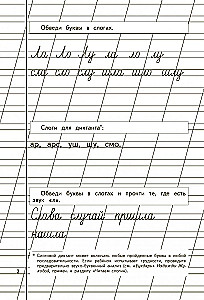 Обведи буквы в слогах.
Ла Ло Лу ла ло лу
сла сло слу шла шло шлу
Слоги для диктанта*:
ар, арс, уш, шу, смо.
Обведи буквы в слогах и прочти те, где есть
звук «л».
Слова случай пришла
нашла
* Слоговой диктант может включать любые пройденные буквы в любой
последовательности. Если ребёнок испытывает трудности, проведите
предварительно звуко-буквенный анализ (см. «Букварь» Надежды Жу-
ковой, пример к разделу «Читаем слоги»).